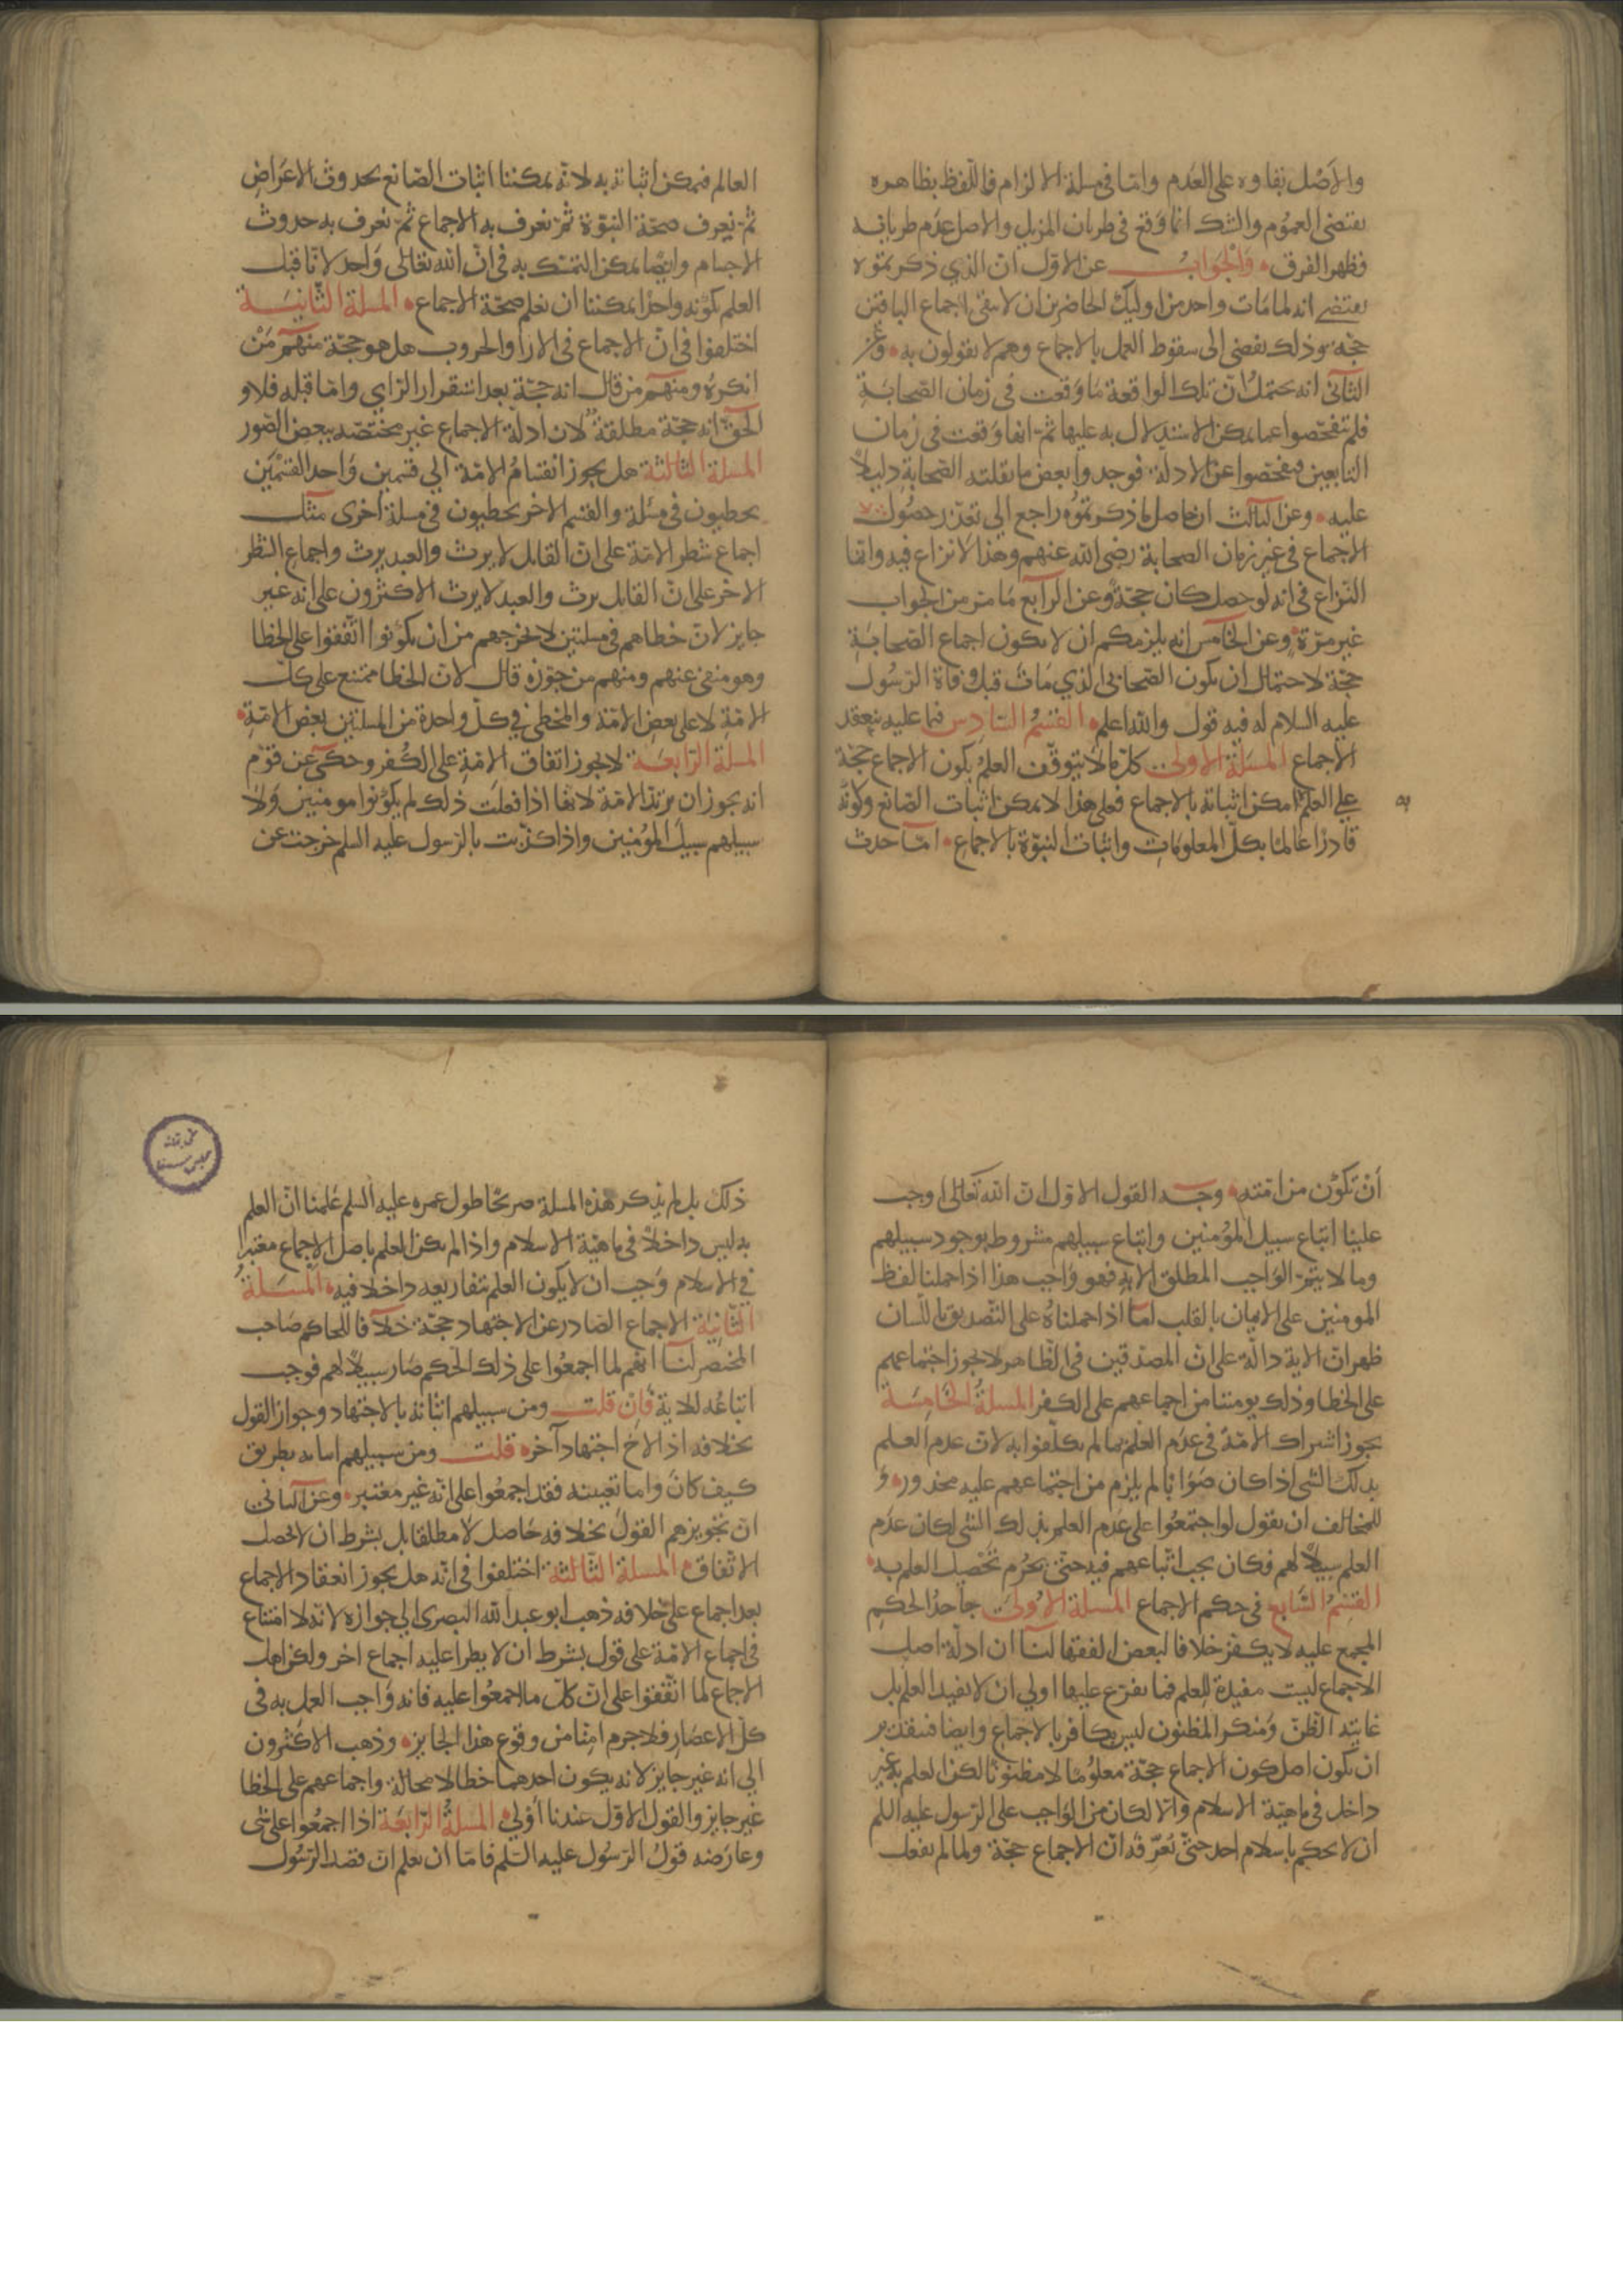 والاصل بقاوه على العدم واما في مسلة الالزام فاللفظ بظاهره
يقتضى العموم والشك انما وقع في طريان المزيل والاصل عدم طريانه
فظهر الفرق والجواب عن الاول ان الذي ذكرتموه
يقتضي انه لما مات واحد من اوليك الحاضرين ان لا يبقى اجماع الباقين
حجة وذلك يفضى الى سقوط العمل بالاجماع وهم لا يقولون به وعن
الثاني انه يحتمل ان تلك الواقعة ما وقعت في زمان الصحابة
فلم يتفحصوا عما يمكن الاستدلال به عليها ثم انها وقعت في زمان
التابعين فتفحصوا عن الادلة فوجدوا بعض ما نقلته الصحابة دليلا
عليه وعن الثالث ان حاصل ما ذكرتموه راجع الى تعذر حصول
الاجماع في غير زمان الصحابة رضي الله عنهم وهذا لا نزاع فيه وانما
النزاع في انه لو حصل كان حجة وعن الرابع ما مر من الجواب
غير مرة وعن الخامس انه يلزمكم ان لا يكون اجماع الصحابة
حجة لاحتمال ان يكون الصحابي الذي مات قبل وفاة الرسول
عليه السلام له فيه قول والله اعلم القسم السادس فيما عليه ينعقد
الاجماع المسلة الاولى كل ما لا يتوقف العلم بكون الاجماع حجة
على العلم به امكن اثباته بالاجماع فعلى هذا لا يمكن اثبات الصانع وكونه
قادرا عالما بكل المعلومات واثبات النبوة بالاجماع اما حدث
العالم فيمكن اثباته به لانه يمكننا اثبات الصانع بحدوث الاعراض
ثم يعرف صحة النبوة ثم نعرف به الاجماع ثم نعرف به حدوث
الاجسام وايضا يمكن التمسك به في ان الله تعالى واحد لانا قبل
العلم بكونه واحدا يمكننا ان نعلم صحة الاجماع المسلة الثانية
اختلفوا في ان الاجماع في الارا والحروب هل هو حجة منهم من
انكره ومنهم من قال انه حجة بعد استقرار الراي واما قبله فلا و
الحق انه حجة مطلقة لان ادلة الاجماع غير مختصه ببعض الصور
المسلة الثالثة هل يجوز انقسام الامة الى قسمين واحد القسمين
يخطيون في مسلة والقسم الاخر يخطيون في مسلة اخرى مثل
اجماع شطر الامة على ان القاتل لا يرث والعبد يرث واجماع الشطر
الاخر على ان القاتل يرث والعبد لا يرث الاكثرون على انه غير
جايز لان خطاهم في مسلتين لا يخرجهم من ان يكونوا اتفقوا على الخطا
وهو منفي عنهم ومنهم من جوزه قال لان الخطا ممتنع على كل
الامة لا على بعض الامة والمخطي في كل واحدة من المسلتين بعض الامة
المسلة الرابعة لا يجوز اتفاق الامة على الكفر وحكى عن قوم
انه يجوز ان يرتد الامة لانها اذا فعلت ذلك لم يكونوا مومنين ولا
سبيلهم سبيل المؤمنين واذا كذبت بالرسول عليه السلم خرجت عن
ان تكون من امته وجه القول الاول ان الله تعالى اوجب
علينا اتباع سبيل المؤمنين واتباع سبيلهم مشروط بوجود سبيلهم
وما لا يتم الواجب المطلق الا به فهو واجب هذا اذا حملنا لفظ
المومنين على الايمان بالقلب اما اذا حملناه على التصديق باللسان
ظهر ان الاية دالة على ان المصدقين في الظاهر لا يجوز اجتماعهم
على الخطا وذلك يومننا من اجماعهم على الكفر المسلة الخامسة
يجوز اشتراك الامة في عدم العلم بما لم يكلفوا به لان عدم العلم
بذلك الشي اذا كان صوابا لم يلزم من اجتماعهم عليه محذور و
للمخالف ان يقول لو اجتمعوا على عدم العلم بذلك الشي لكان عدم
العلم سبيلا لهم فكان يجب اتباعهم فيه حتى يحرم تحصيل العلم به
القسم السابع في حكم الاجماع المسلة الاولى جاحد الحكم
المجمع عليه لا يكفر خلافا لبعض الفقها لنا ان ادلة اصل
الاجماع ليست مفيدة للعلم فما يفرع عليها اولى ان لا يفيد العلم بل
غايته الظن ومنكر المظنون ليس بكافر بالاجماع وايضا فبتقدير
ان يكون اصل كون الاجماع حجة معلوما لا مظنونا لكن العلم به غير
داخل في ماهية الاسلام والا لكان من الواجب على الرسول عليه السلم
ان لا يحكم باسلام احد حتى يعرفه ان الاجماع حجة ولما لم يفعل
ذلك بل لم يذكر هذه المسلة صريحا طول عمره عليه السلم علمنا ان العلم
به ليس داخلا في ماهية الاسلام واذا لم يكن العلم باصل الاجماع معتبرا
في الاسلام وجب ان لا يكون العلم بتفاريعه داخلا فيه المسلة
الثانية الاجماع الصادر عن الاجتهاد حجة خلافا للحاكم صاحب
المختصر لنا انهم لما اجمعوا على ذلك الحكم صار سبيلا لهم فوجب
اتباعه للاية فان قلت ومن سبيلهم اثباته بالاجتهاد وجواز القول
بخلافه اذ الاح اجتهاد آخر قلت ومن سبيلهم اثباته بطريق
كيف كان واما تعيينه فقد اجمعوا على انه غير معتبر وعن الثاني
ان تجويزهم القول بخلافه حاصل لا مطلقا بل بشرط ان لا يحصل
الاتفاق المسلة الثالثة اختلفوا في انه هل يجوز انعقاد الاجماع
بعد اجماع على خلافه ذهب ابو عبد الله البصرى الى جوازه لانه لا امتناع
في اجماع الامة على قول بشرط ان لا يطرا عليه اجماع اخر ولكن اهل
الاجماع لما اتفقوا على ان كل ما اجمعوا عليه فانه واجب العمل به في
كل الاعصار فلا جرم امنا من وقوع هذا الجايز وذهب الاكثرون
الى انه غير جايز لانه يكون احدهما خطا لا محالة واجماعهم على الخطا
غير جايز والقول الاول عندنا اولى المسلة الرابعة اذا اجمعوا على شي
وعارضه قول الرسول عليه السلم فاما ان نعلم ان قصد الرسول